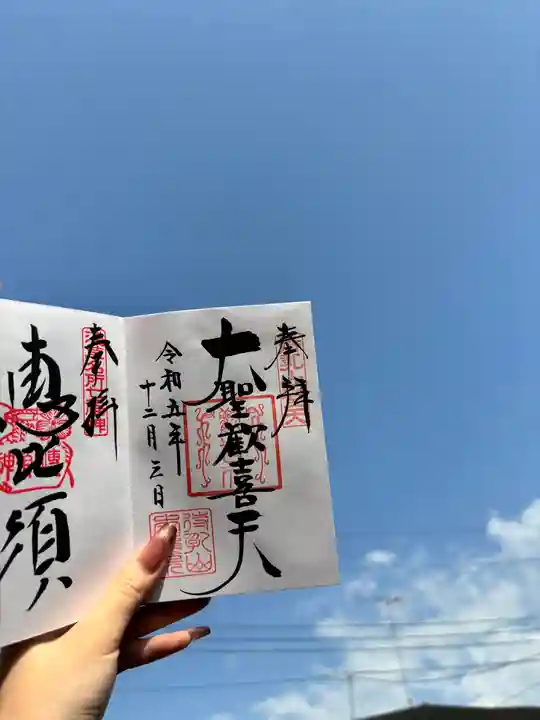 奉拝
大聖歓喜天
令和五年
十二月三日
待乳山
奉拝
恵比須